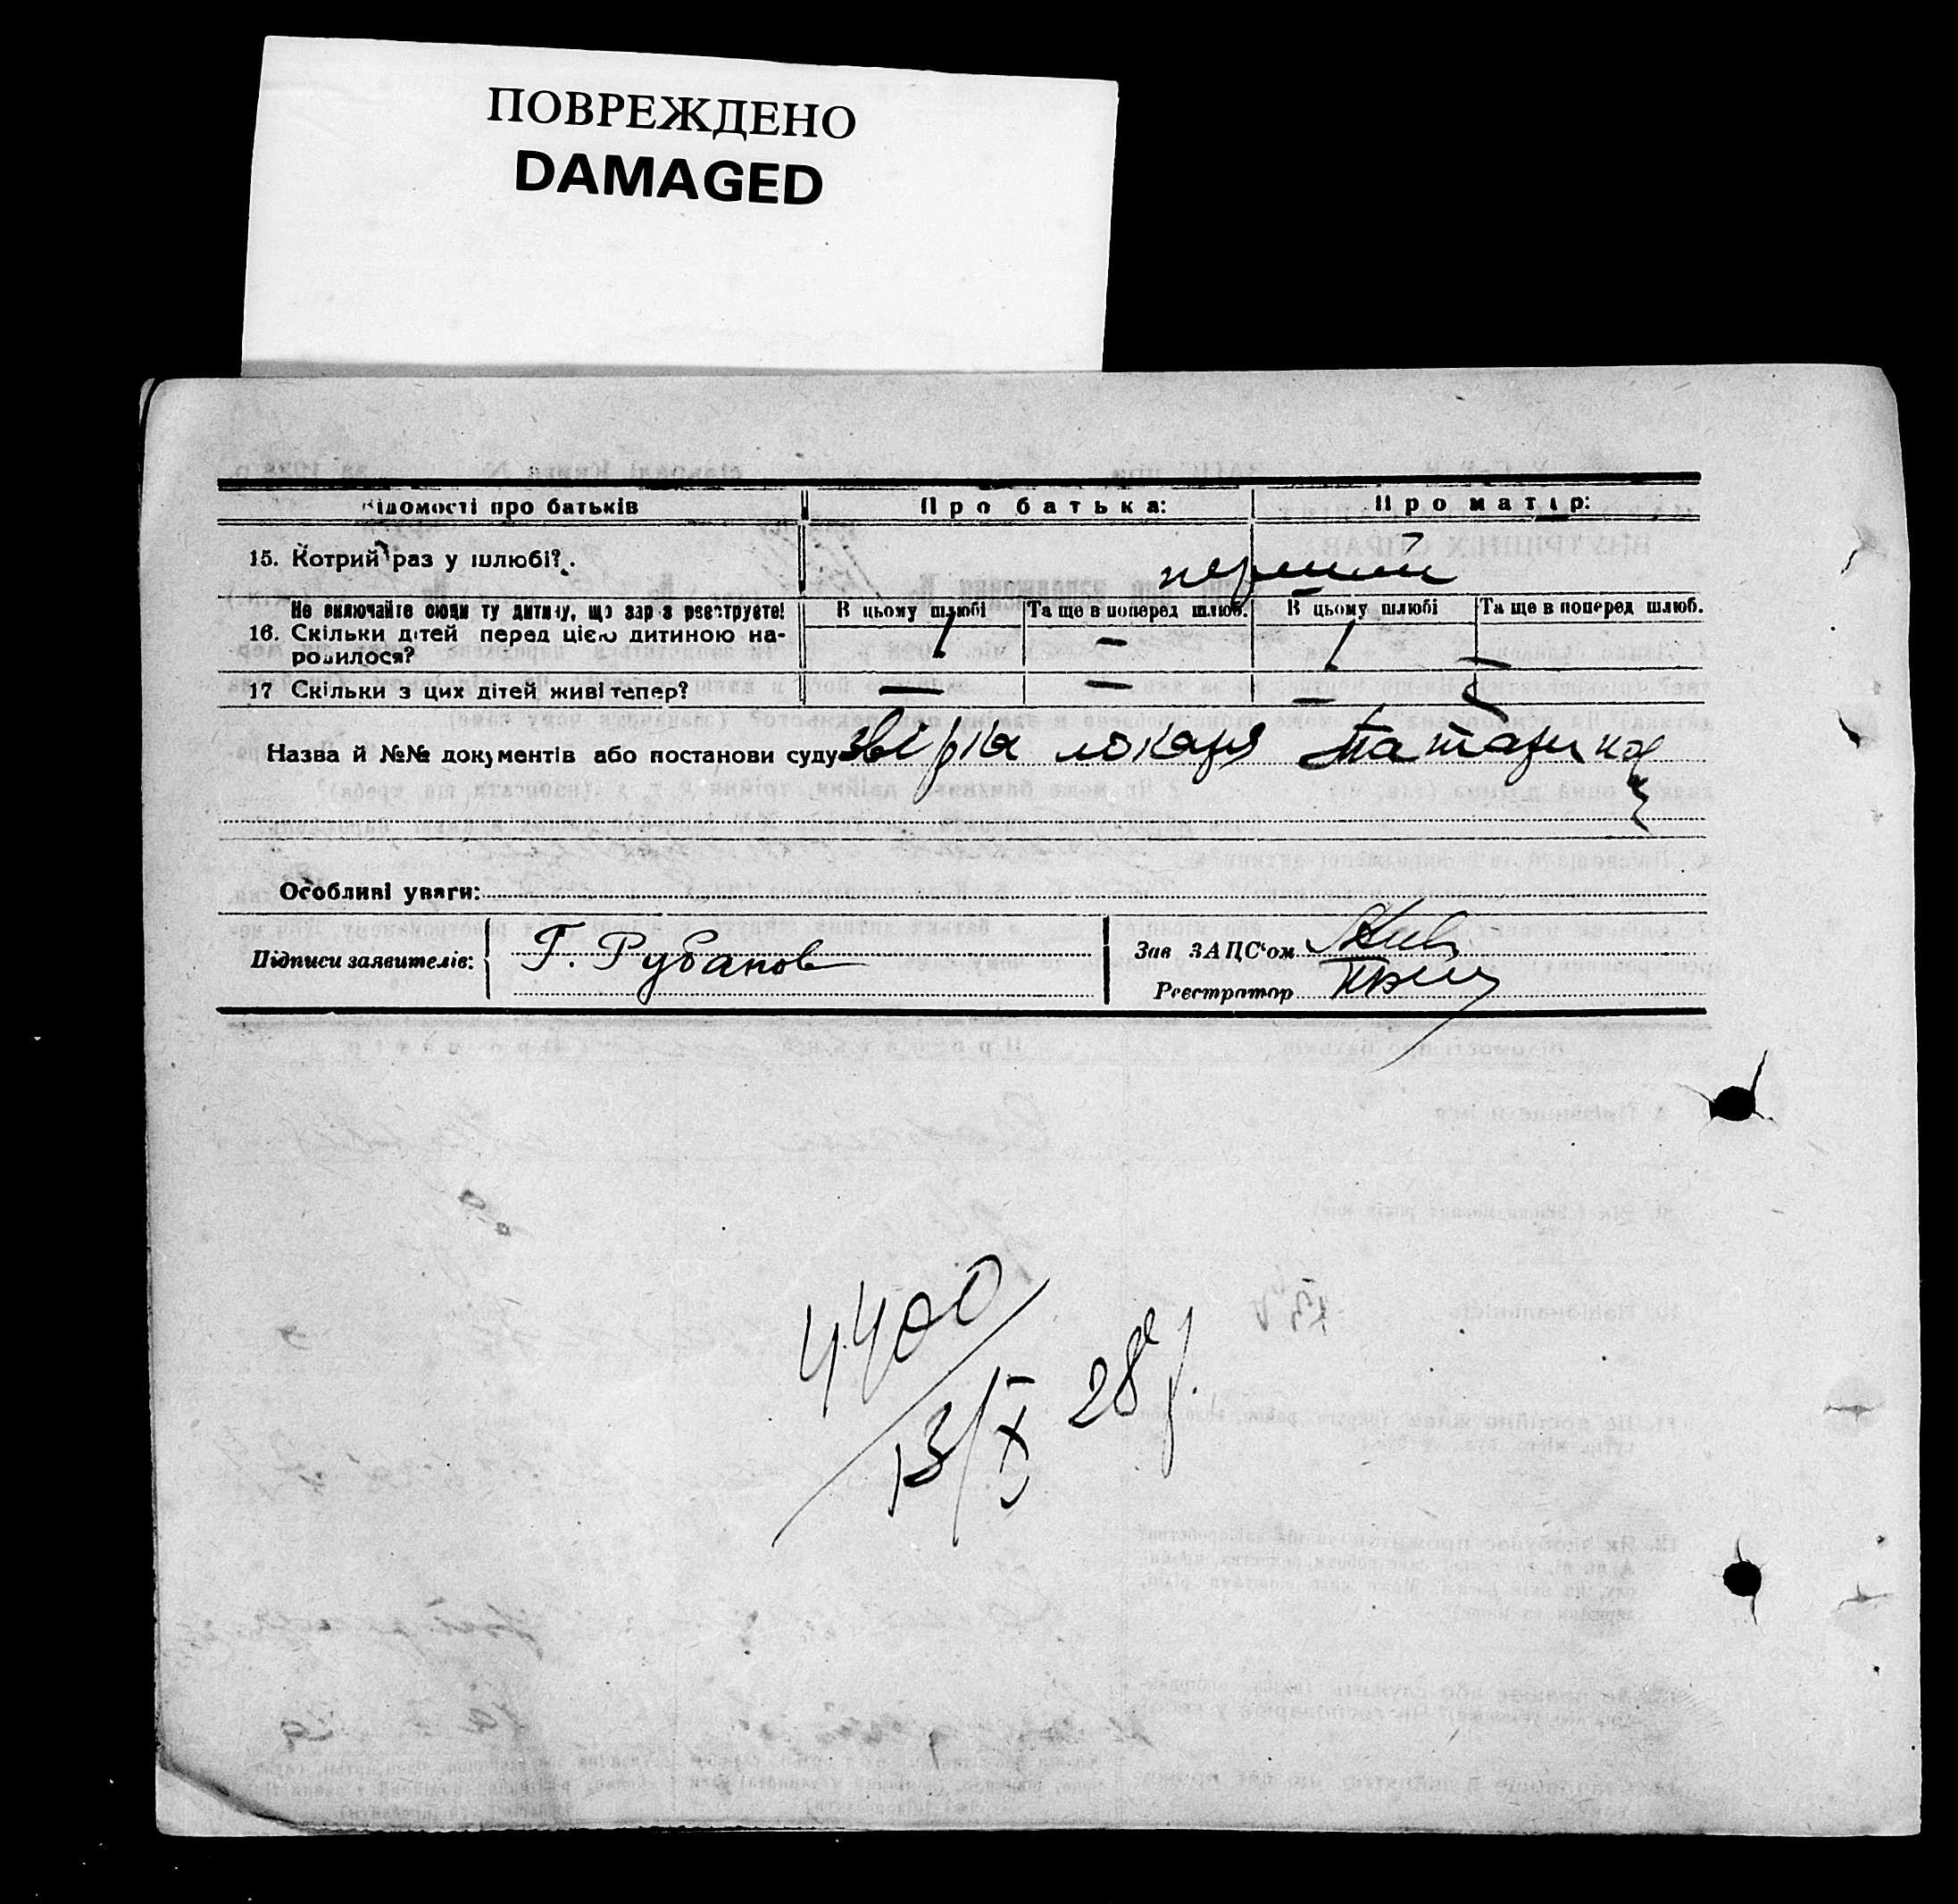 ПОВРЕЖДЕНО
DAMAGED
Відомості про батьків Про батька: Про матір:
15. Котрий раз у шлюбі? перший
Не включайте сюди ту дитину, що зараз реєструєте! В цьому шлюбі Та ще в поперед шлюб. В цьому шлюбі Та ще в поперед шлюб.
16. Скільки дітей перед цією дитиною на- 1 — 1 —
родилося?
17 Скільки з цих дітей живі тепер? — — —
Назва й №№ документів або постанови суду
Особливі уваги:
Підписи заявителів: Г. Рубанов Зав ЗАЦС'ом
Реєстратор
4400
13/X 28 р.